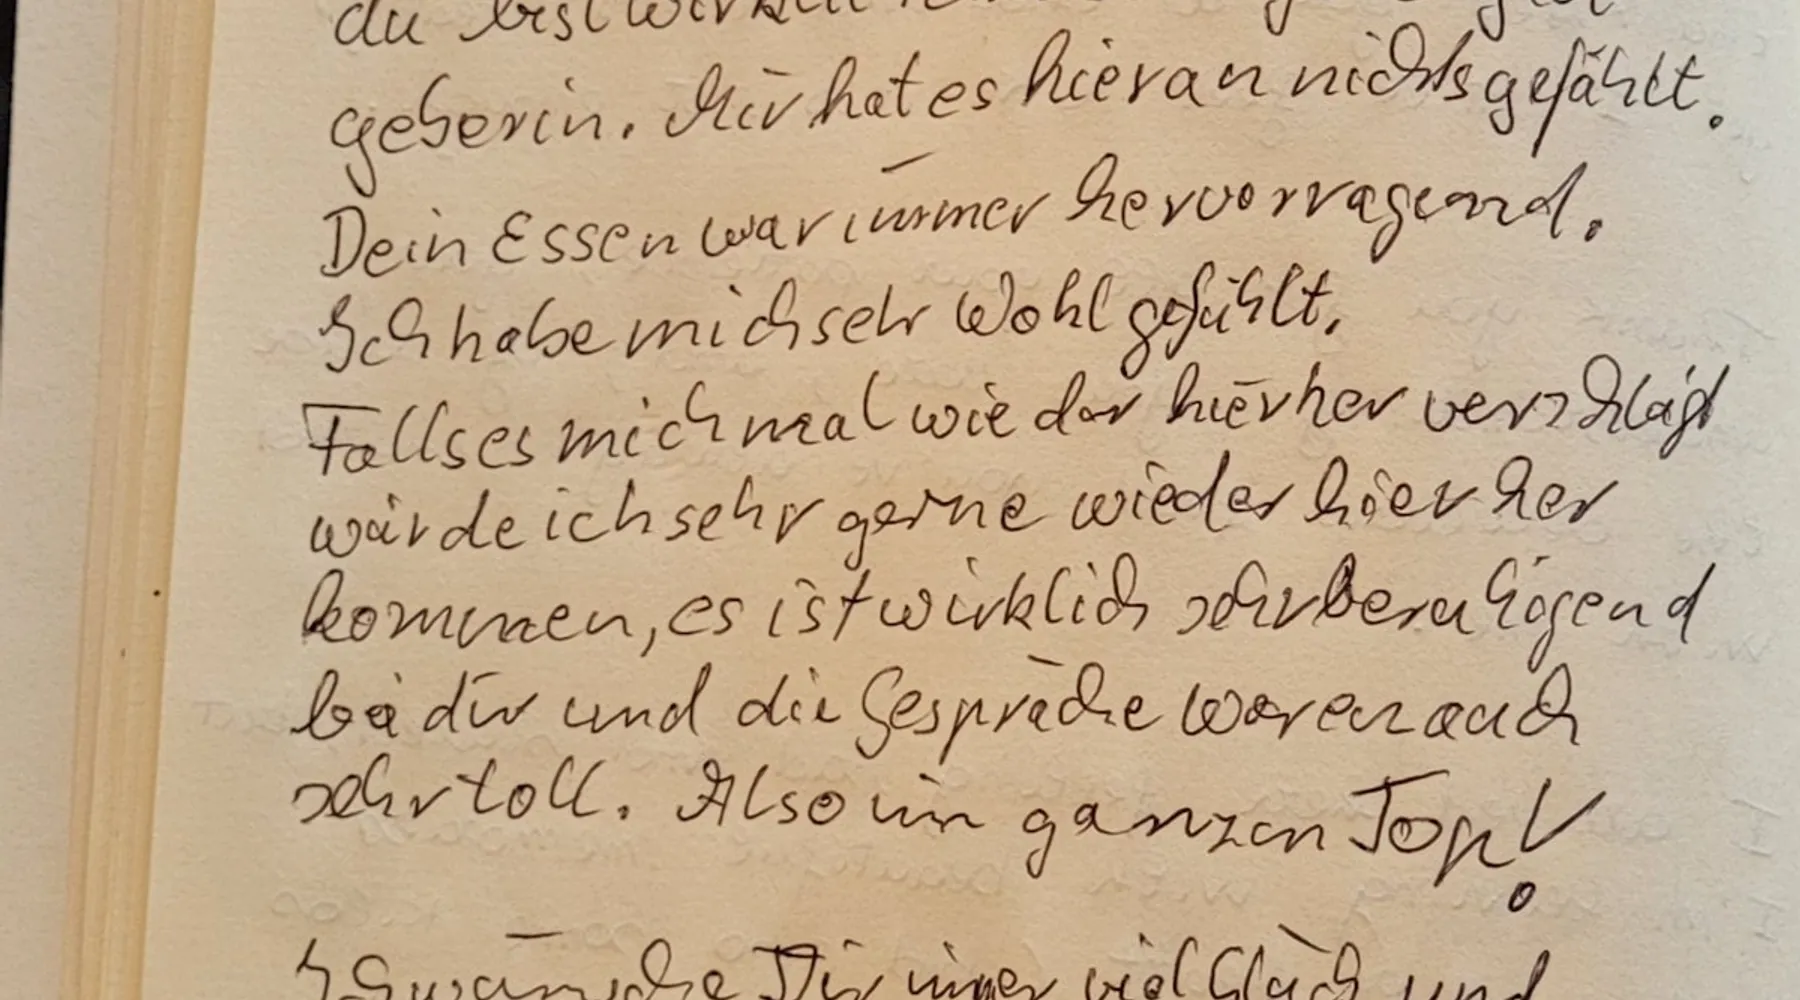 du bist wirklich
geberin. Mir hat es hier an nichts gefählt.
Dein Essen war immer hervorragend.
Ich habe mich sehr Wohl gefühlt.
Falls es mich mal wieder hierher verschlägt
würde ich sehr gerne wieder hier her
kommen, es ist wirklich sehr beruhigend
bei dir und die Gespräche waren auch
sehr toll. Also im ganzen Top!
Ich wünsche Dir immer viel Glück und